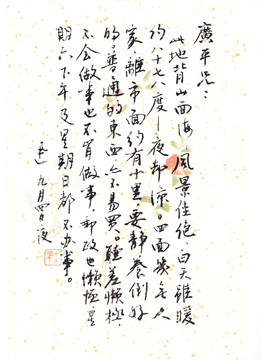 廣平兄：
此地背山面海，風景佳絶，白天雖暖
約八十七八度—夜却涼。四面幾無人
家，離市面約有十里，要靜養倒好
的。普通的東西，亦不易買。聽差懶極，
不会做事也不肯做事，郵政也懶極，星
期六下午及星期日都不办事。
迅 九月四日夜